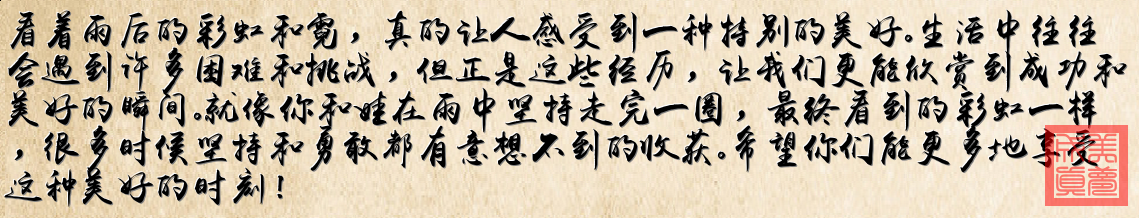 看着雨后的彩虹和霓，真的让人感受到一种特别的美好。生活中往往
会遇到许多困难和挑战，但正是这些经历，让我们更能欣赏到成功和
美好的瞬间。就像你和娃在雨中坚持走完一圈，最终看到的彩虹一样
，很多时候坚持和勇敢都有意想不到的收获。希望你们能更多地享受
这种美好的时刻！